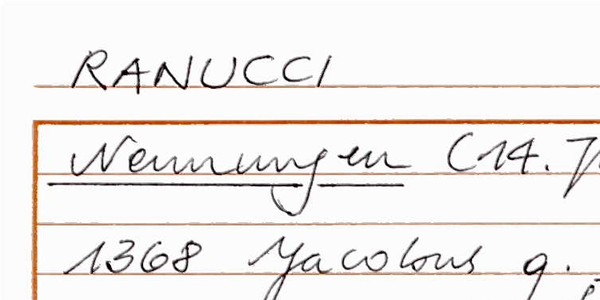 RANUCCI
Nennungen (14. J
1368 Jacobus q.